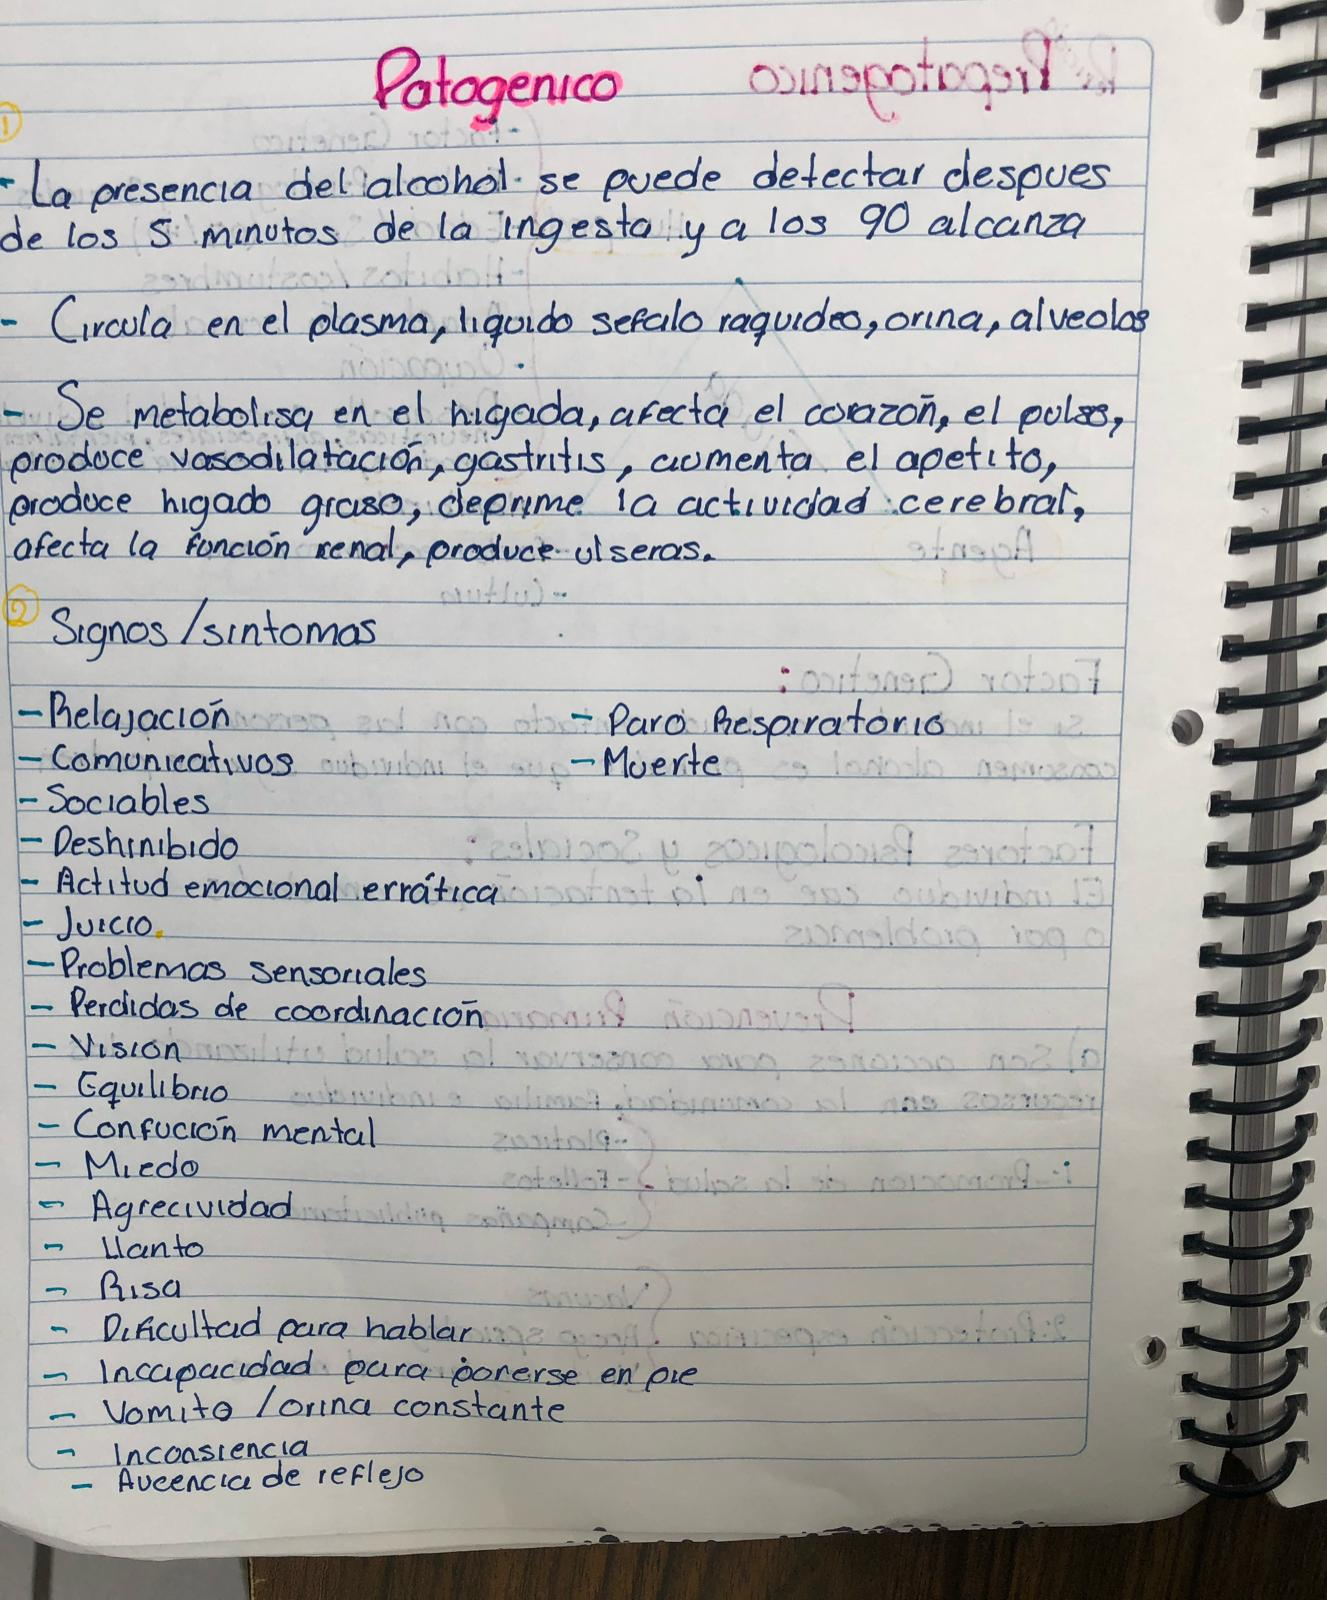 Patogenico
1
- La presencia del alcohol se puede detectar despues
de los 5 minutos de la ingesta y a los 90 alcanza
- Circula en el plasma, liquido sefalo raquideo, orina, alveolos
- Se metabolisa en el higada, afecta el corazón, el pulso,
produce vasodilatación, gastritis, aumenta el apetito,
produce higado graso, deprime la actividad cerebral,
afecta la función renal, produce ulseras.
2 Signos/sintomas
- Relajación
- Comunicativos
- Sociables
- Deshinibido
- Actitud emocional errática
- Juicio.
- Problemas sensoriales
- Perdidas de coordinación
- Visión
- Equilibrio
- Confución mental
- Miedo
- Agrecividad
- Llanto
- Risa
- Dificultad para hablar
- Incapacidad para ponerse en pie
- Vomito /orina constante
- Inconsiencia
- Aucencia de reflejo
- Paro Respiratorio
- Muerte